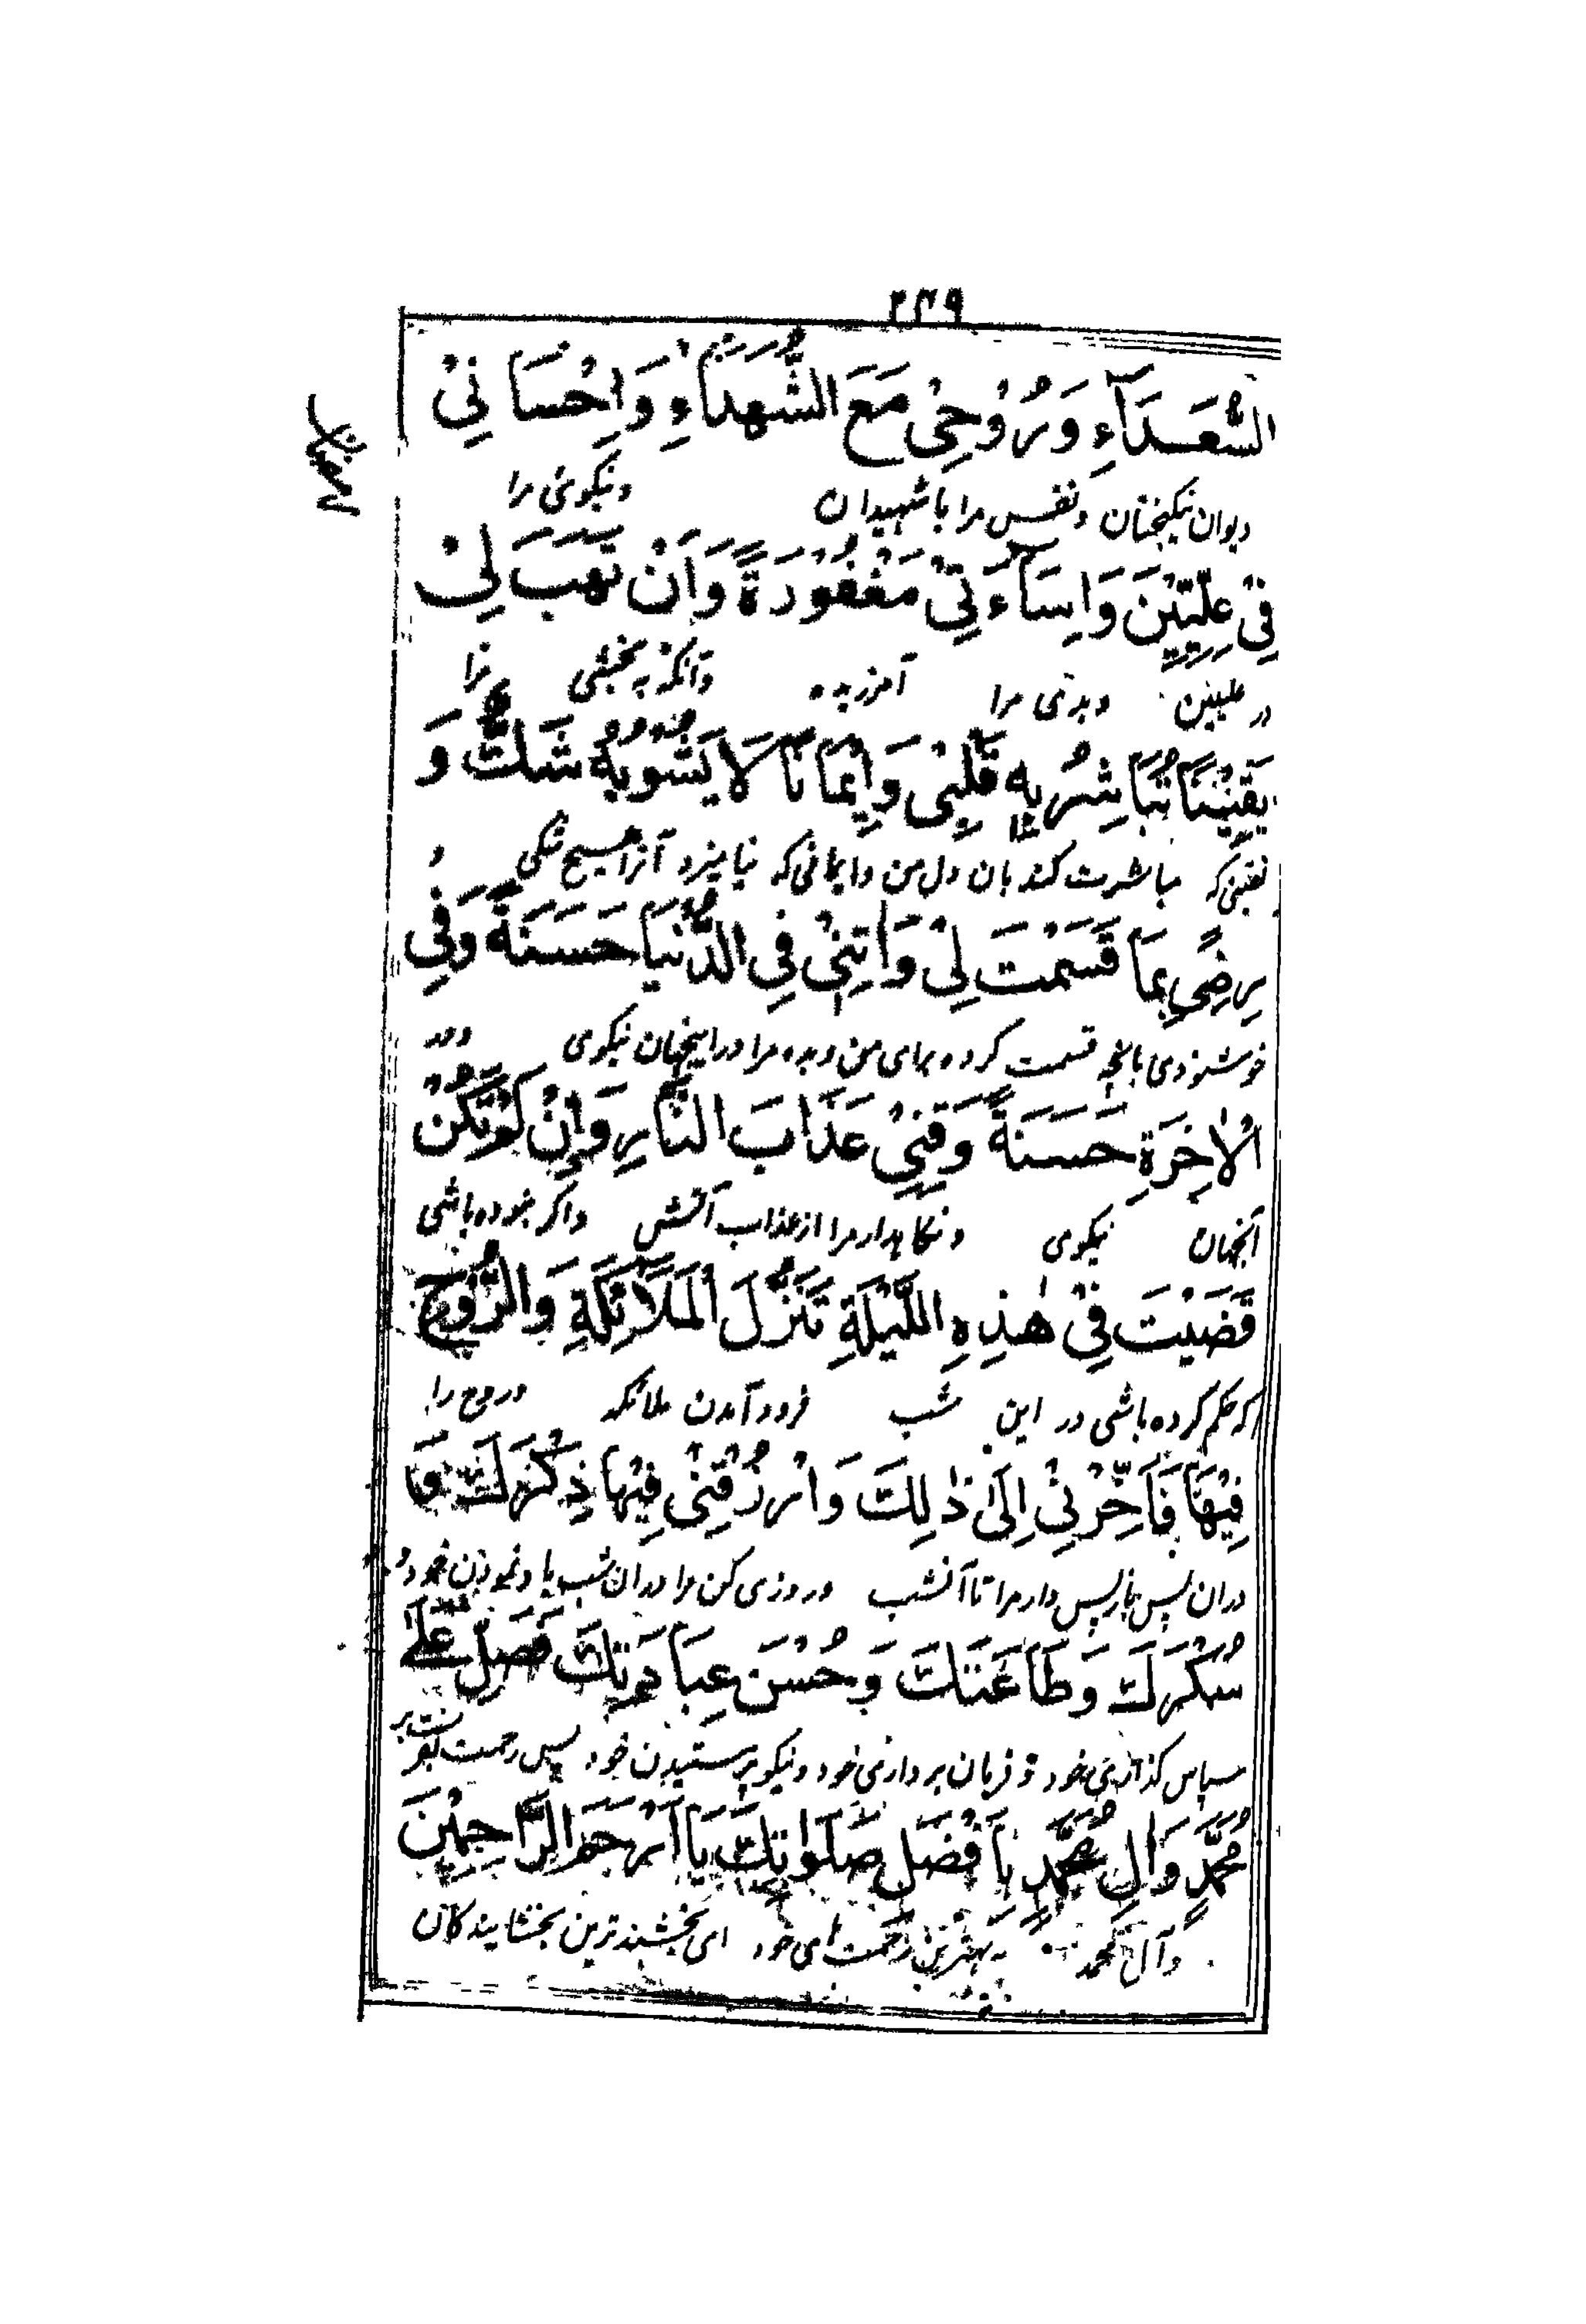 ۲۴۹
السُّعَدَآءِ وَرُوْحِیْ مَعَ الشُّهَدَآءِ وَاِحْسَانِیْ
دیوان نیکبختان ونفس مرا با شهیدان ونیکوئی مرا
فِیْ عِلِّیِّیْنَ وَاِسَآءَتِیْ مَغْفُوْرَةً وَاَنْ تَهَبَ لِیْ
در علیین وبدی مرا آمرزیده وآنکه به بخشی مرا
یَقِیْنًا تُبَاشِرُ بِهٖ قَلْبِیْ وَاِیْمَانًا لَا یَشُوْبُهٗ شَكٌّ وَ
یقینی که مباشرت کند بان دل من وایمانی که نیامیزد آنرا هیچ شکی و
رِضًی بِمَا قَسَمْتَ لِیْ وَاٰتِنِیْ فِی الدُّنْیَا حَسَنَةً وَفِی
خوشنودی بانچه قسمت کرده برای من وبده مرا دراینجهان نیکوی ودر
الْاٰخِرَةِ حَسَنَةً وَقِنِیْ عَذَابَ النَّارِ وَاِنْ لَمْ تَکُنْ
آنجهان نیکوی ونگاهدار مرا از عذاب آتش واگر نبوده باشی
قَضَیْتَ فِیْ هٰذِهِ اللَّیْلَةِ تَنَزُّلَ الْمَلَآئِکَةِ وَالرُّوْحِ
که حکم کرده باشی در این شب فرود آمدن ملائکه وروح را
فِیْهَا فَاَخِّرْنِیْ اِلٰی ذٰلِكَ وَارْزُقْنِیْ فِیْهَا ذِکْرَكَ وَ
دران پس بازپس دار مرا تا آنشب وروزی کن مرا دران شب یاد نمودن خود و
شُکْرَكَ وَطَاعَتَكَ وَحُسْنَ عِبَادَتِكَ فَصَلِّ عَلٰی
سپاس گذاری خود و فرمان برداری خود ونیکو پرستیدن خود پس رحمت بفرست بر
مُحَمَّدٍ وَاٰلِ مُحَمَّدٍ بِاَفْضَلِ صَلَوَاتِكَ یَا اَرْحَمَ الرَّاحِمِیْنَ
وآل محمد به بهترین رحمت های خود ای بخشنده ترین بخشایندگان